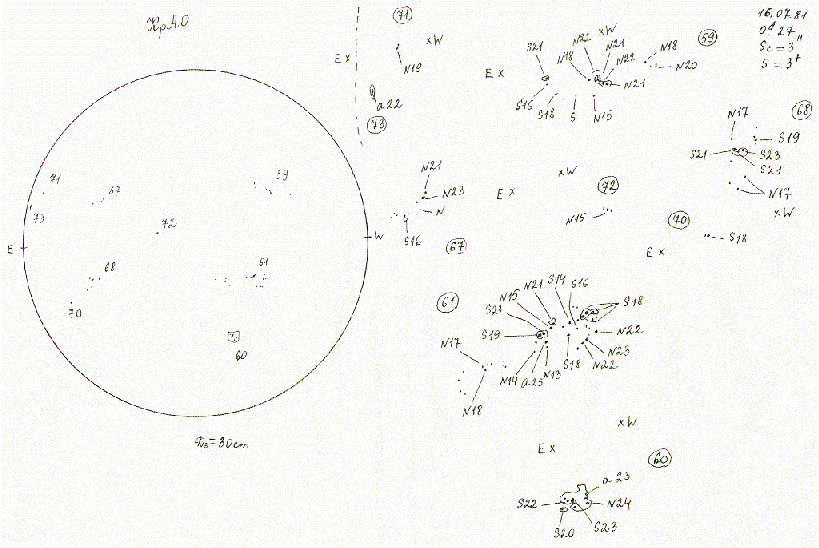 71
E x
x W
N19
a22
73
S21
N22
x W
N21
N18
N22
N18
59
N20
E x
N21
S15
S18
S
N15
16.07.81
Sc = 3
S = 3+
N17
68
S19
S21
S23
S21
N17
x W
N21
N23
N
S16
67
E x
x W
72
N15
70
S18
E x
71
67
59
73
72
E
W
68
61
70
60
D☉=30cm
61
N21
S14
S16
N15
S21
S18
S19
N22
N17
N23
N22
S18
N13
a25
N14
N18
x W
E x
60
a 23
S22
N24
S20
S23